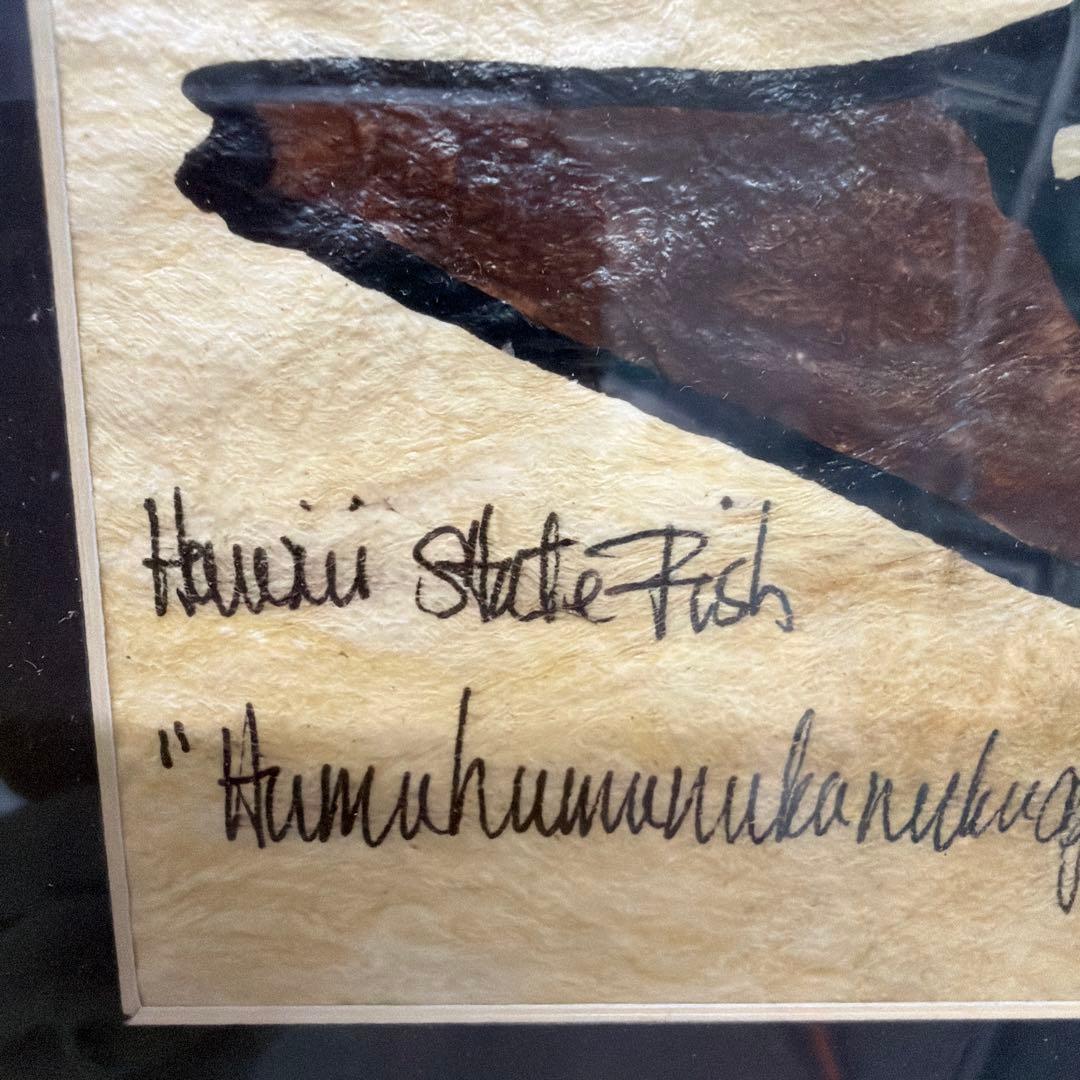 Hawaii State Fish
"Humuhumunukunukuag